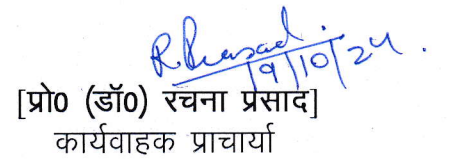 R Prasad.
19/10/24.
[प्रो0 (डॉ0) रचना प्रसाद]
कार्यवाहक प्राचार्या